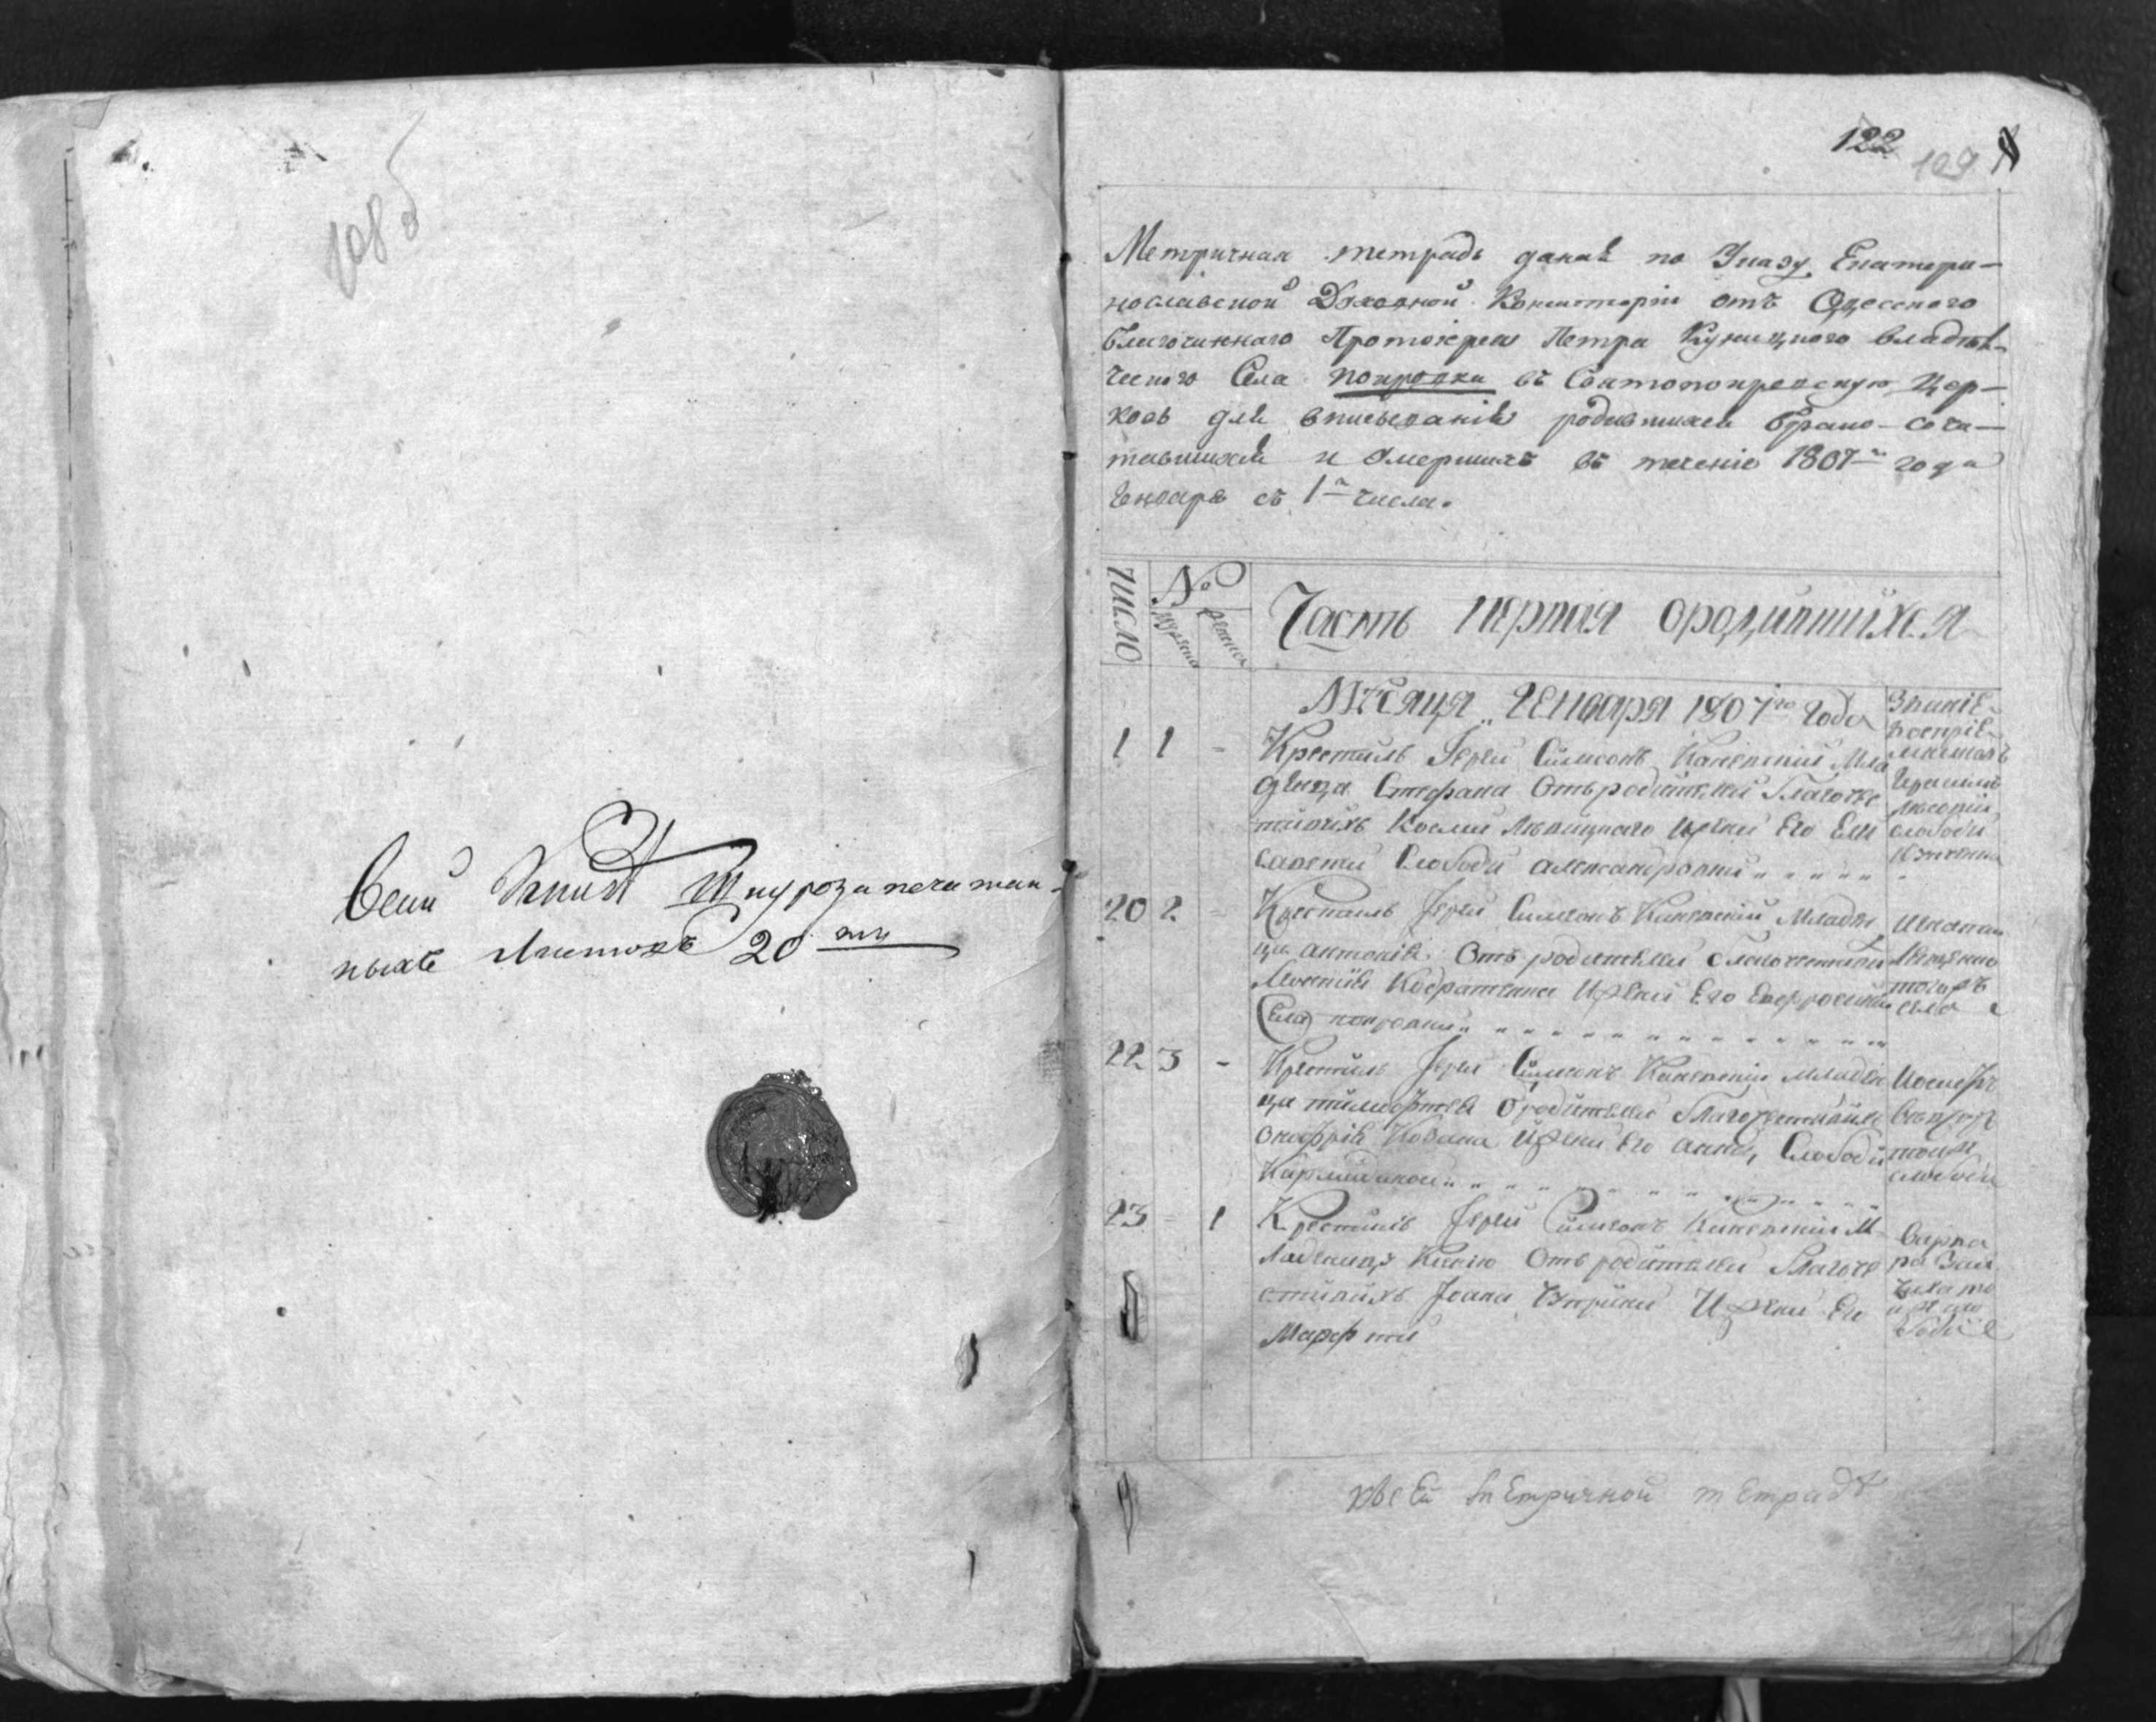 108 б
Всей Книге Шнурозапечатан-
ныхъ Листовъ 20 ти
122 109
Метричная тетрадь даная по Указу Екатери-
нославской Духовной Консисторіи отъ Одесского
благочиннаго Протоіерея Петра Куницкого владѣл-
ческого Села покровки въ Святопокровскую цер-
ковь для вписыванія родившихся брако-соче-
тавшихся и Умершихъ въ теченіе 1807го года
Генваря съ 1го числа.
Число № Часть первая ородившихся
Мѣсяца Генваря 1807го Года
Званіе
воспріе-
мниковъ
1 1 - Крестилъ Іерей Симеонъ Каневскій Мла
денца Стефана Отъ родителей благоче
стивихъ Космы Лѣвицкаго Ижени Его Ели
саветы Слободы александровки
слободы
20 2 - Крестилъ Іерей Симеонъ Каневскій Младен
ца антонія Отъ родителей благочестиви
Ижени Его Евфросиніи
Села покровки
тогожъ
села
22 3 - Крестилъ Іерей Симеонъ Каневскій младен
ца тимофтея Ородителей благочестивихъ
онофрія Ижени Его анны, Слободы
Иосифъ
слободы
23 - 1 Крестилъ Іерей Симеонъ Каневскій М
ладеницу Ксенію Отъ родителей благоче
стивихъ Іоана Ижени Его
Марфты
Варва
ра
квсей метричной тетрадѣ